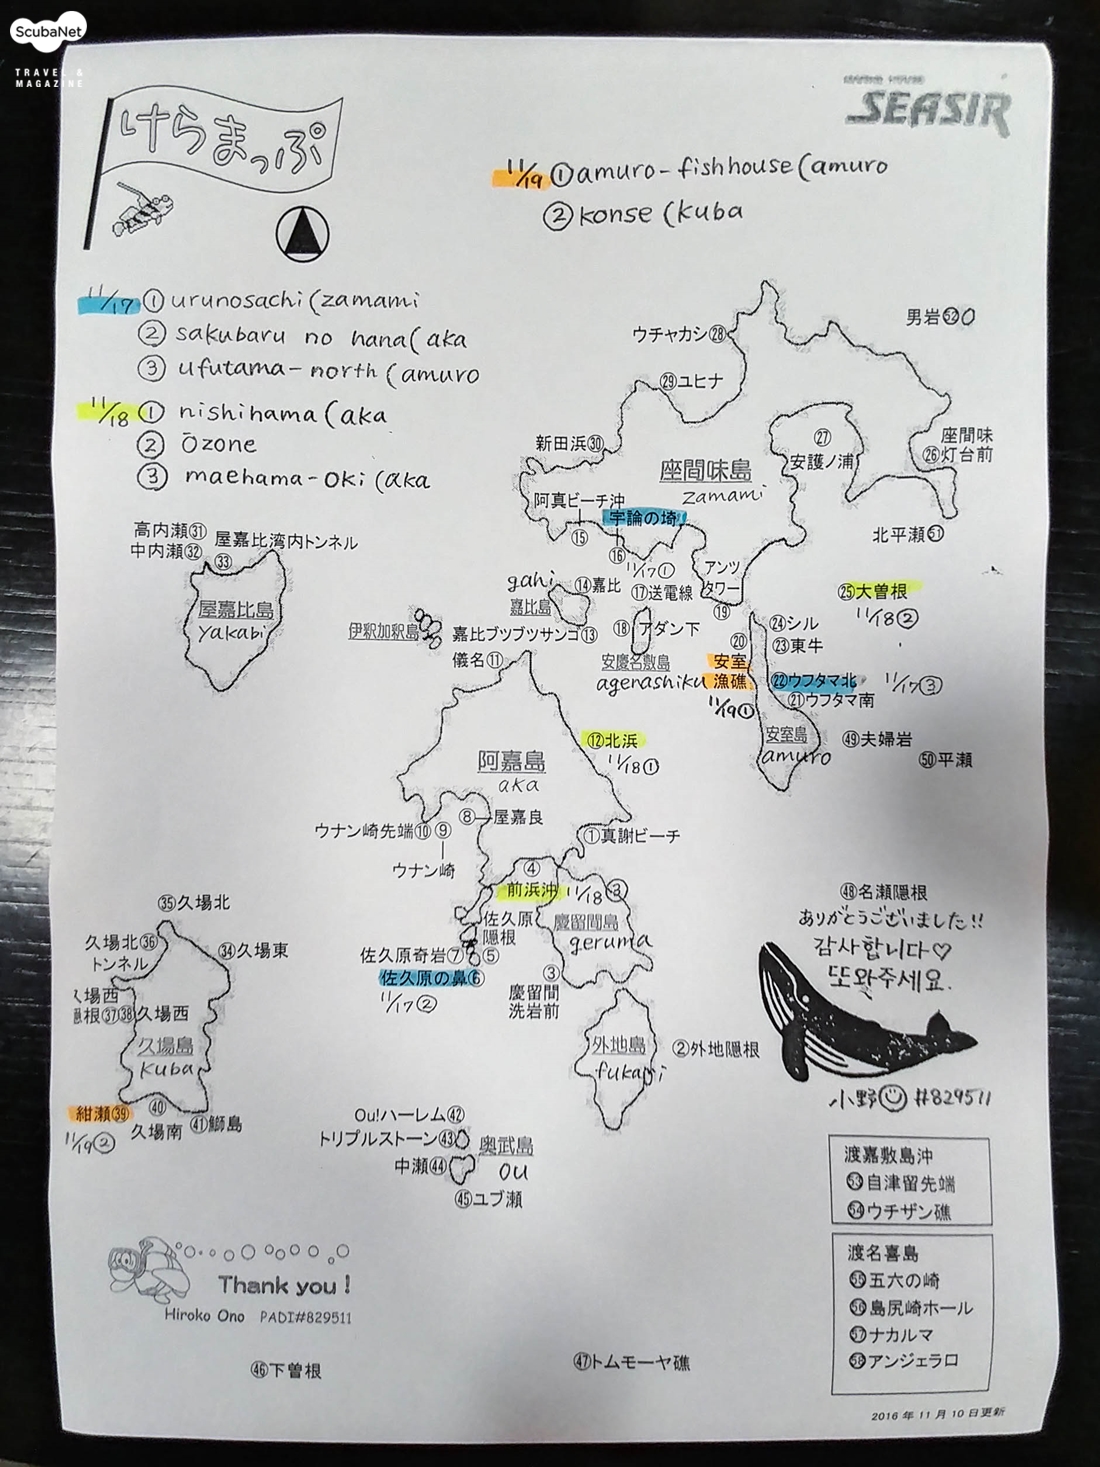 ScubaNet
TRAVEL &
MAGAZINE
けらまっぷ
MARINE HOUSE
SEASIR
11/19 ① amuro-fishhouse (amuro
② konse (kuba
11/17 ① urunosachi (zamami
② sakubaru no hana (aka
③ ufutama-north (amuro
11/18 ① nishihama (aka
② Ōzone
③ maehama-oki (aka
男岩52
ウチャカシ28
29ユヒナ
新田浜30
27
安護ノ浦
座間味
26灯台前
座間味島
zamami
阿真ビーチ沖
⑮
宇論の埼
⑯
11/17①
北平瀬51
高内瀬31
中内瀬32
屋嘉比湾内トンネル
33
屋嘉比島
yakabi
gahi
⑭嘉比
嘉比島
⑰送電線
アンツ
タワー
⑲
25大曽根
11/18②
伊釈加釈島
嘉比ブツブツサンゴ⑬
⑱アダン下
⑳
24シル
23東牛
儀名⑪
安慶名敷島
agerashiku
安室
漁礁
11/19①
22ウフタマ北
11/17③
21ウフタマ南
安室島
amuro
49夫婦岩
50平瀬
⑫北浜
11/18①
阿嘉島
aka
⑧屋嘉良
ウナン崎先端⑩⑨
ウナン崎
①真謝ビーチ
④
前浜沖
11/18③
佐久原
隠根
慶留間島
geruma
佐久原奇岩⑦⑤
佐久原の鼻⑥
11/17②
③
慶留間
洗岩前
48名瀬隠根
ありがとうございました!!
감사합니다♡
또와주세요.
35久場北
久場北36
トンネル
34久場東
久場西
隠根37 38久場西
久場島
kuba
紺瀬39
11/19②
40
久場南
41鰤島
外地島
fukaji
②外地隠根
小野☺ #829511
Ou!ハーレム42
トリプルストーン43
中瀬44
奥武島
ou
45ユブ瀬
渡嘉敷島沖
53自津留先端
54ウチザン礁
渡名喜島
55五六の崎
56島尻崎ホール
57ナカルマ
58アンジェラロ
Thank you !
Hiroko Ono PADI#829511
46下曽根
47トムモーヤ礁
2016 年 11 月 10 日更新